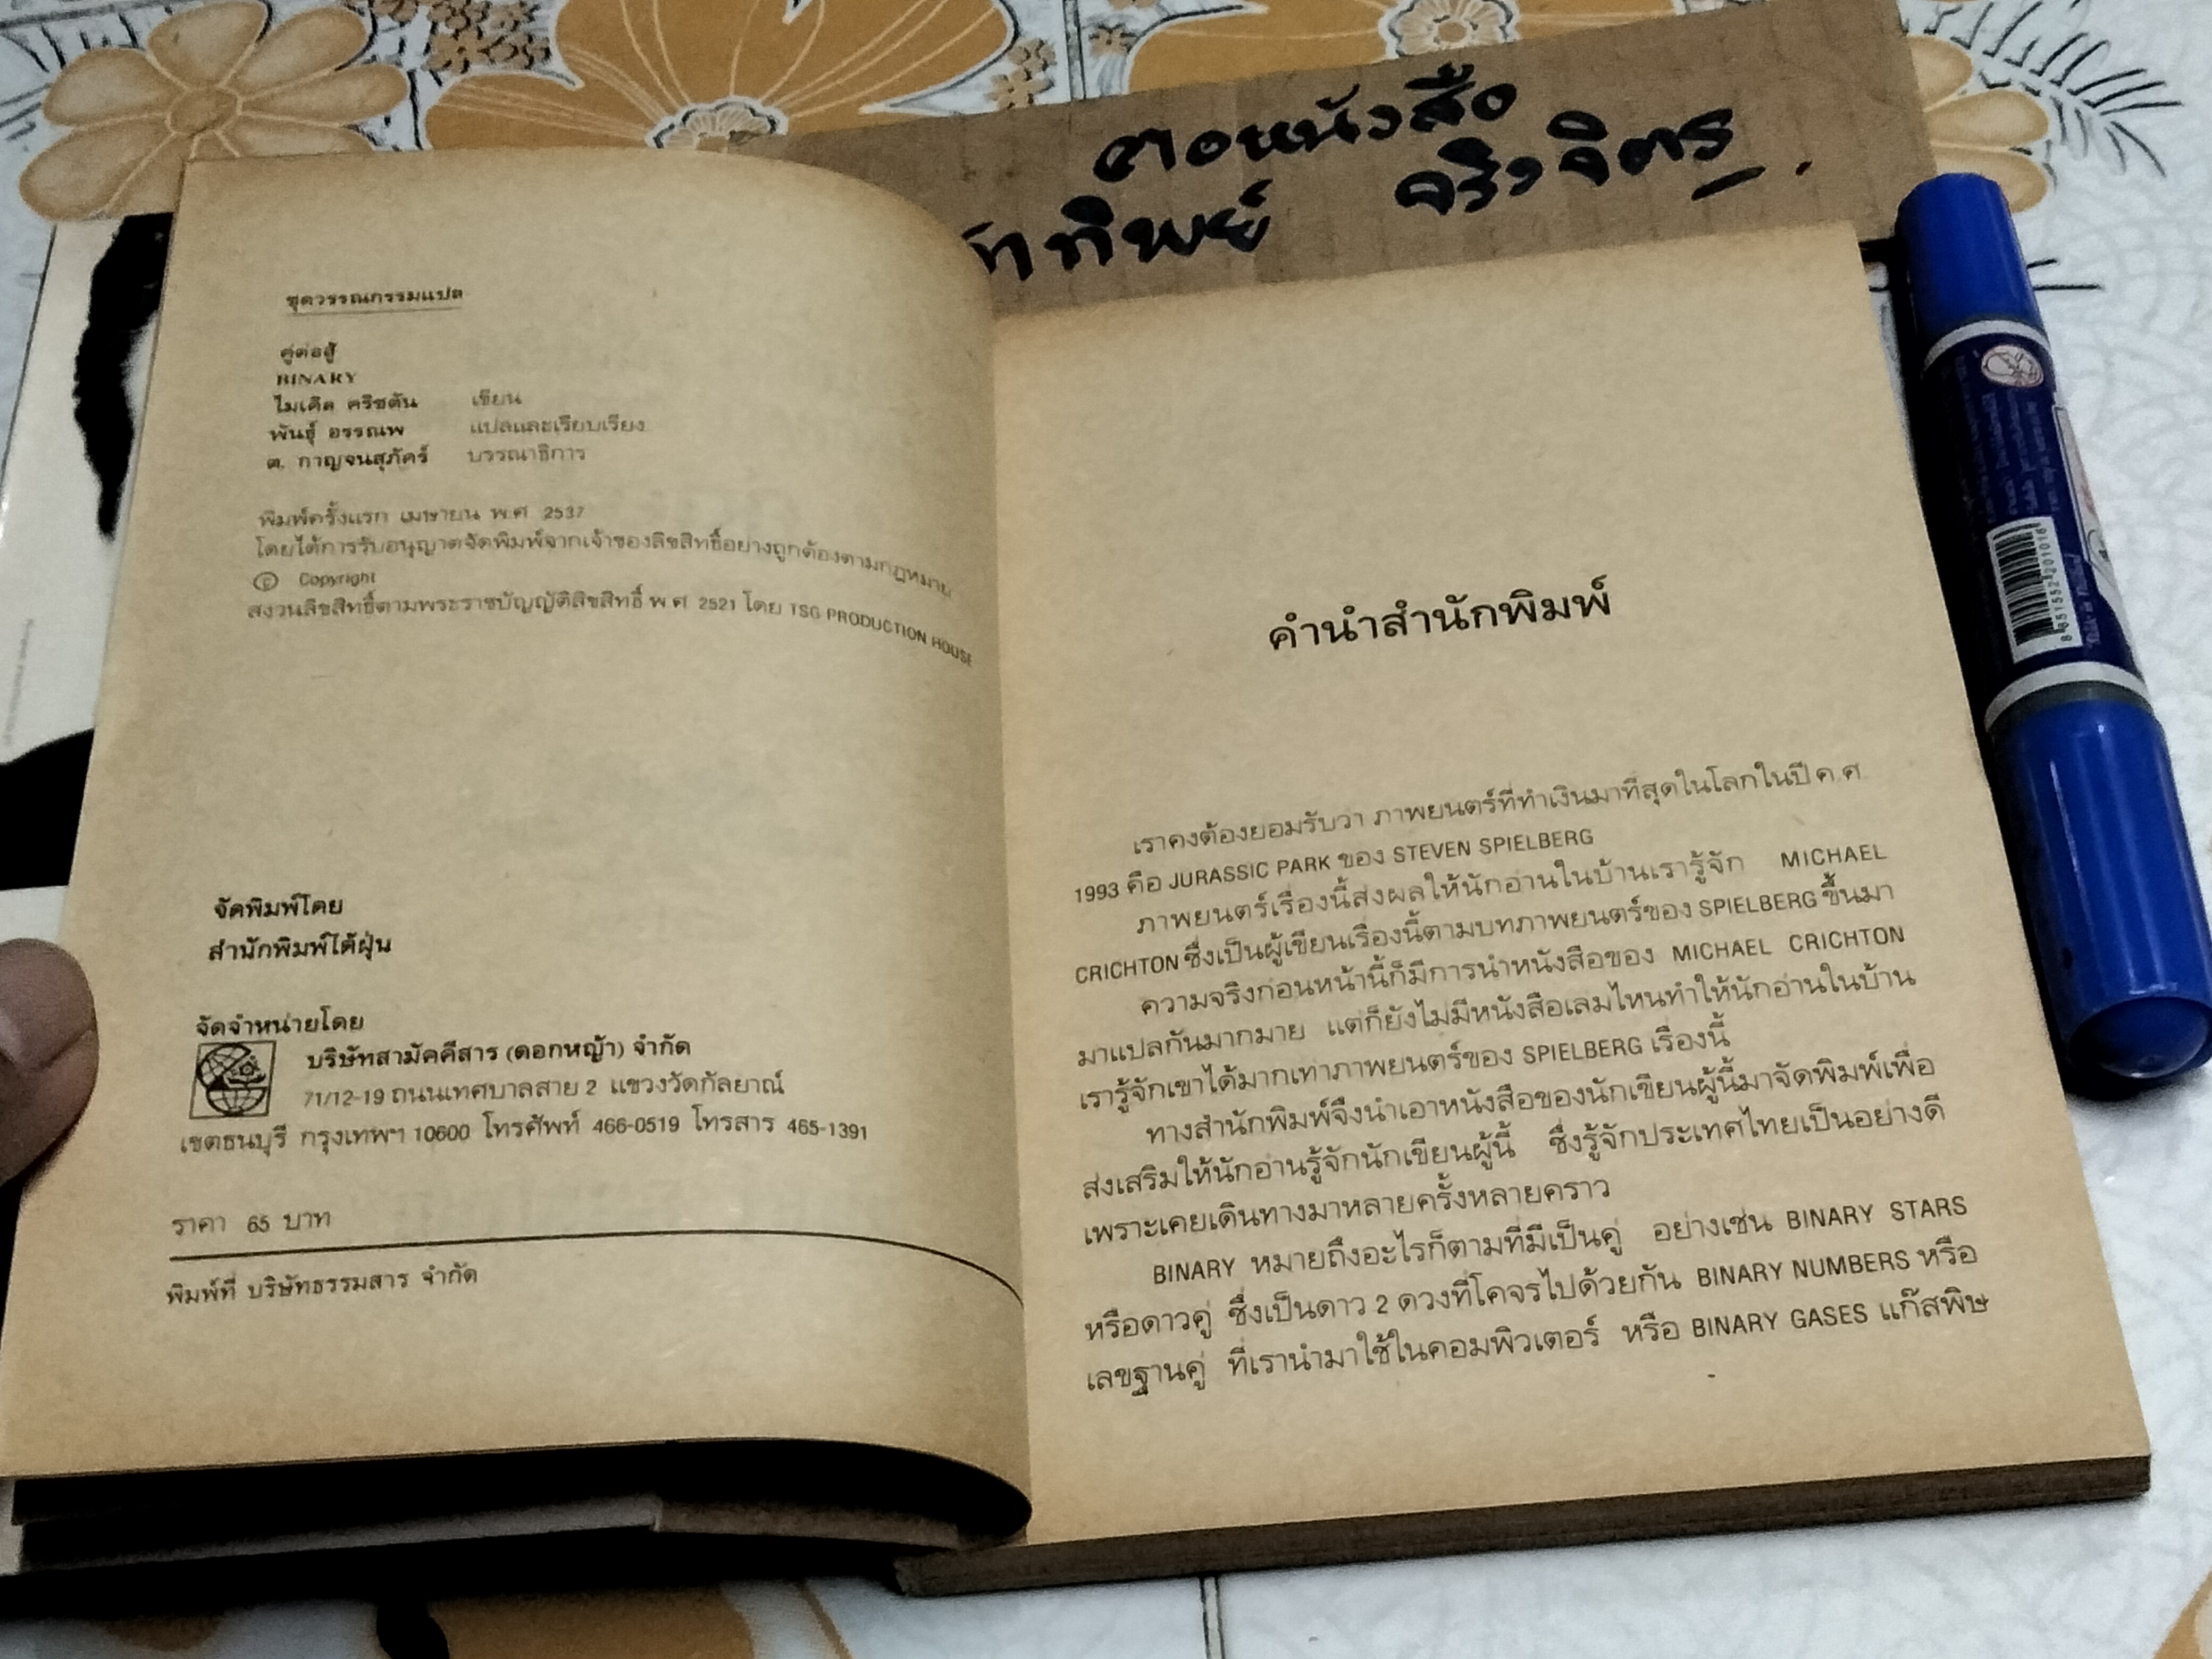 คอหนังสือ
ทิพย์ จริงจิตร
ชุดวรรณกรรมแปล
คู่ต่อสู้
BINARY
ไมเคิล คริชตัน เขียน
พันธุ์ อรรณพ แปลและเรียบเรียง
ต. กาญจนสุภัคร์ บรรณาธิการ
พิมพ์ครั้งแรก เมษายน พ.ศ 2537
โดยได้การรับอนุญาตจัดพิมพ์จากเจ้าของลิขสิทธิ์อย่างถูกต้องตามกฎหมาย
© Copyright
สงวนลิขสิทธิ์ตามพระราชบัญญัติลิขสิทธิ์ พ.ศ 2521 โดย TSG PRODUCTION HOUSE
จัดพิมพ์โดย
สำนักพิมพ์ไต้ฝุ่น
จัดจำหน่ายโดย
บริษัทสามัคคีสาร (ดอกหญ้า) จำกัด
71/12-19 ถนนเทศบาลสาย 2 แขวงวัดกัลยาณ์
เขตธนบุรี กรุงเทพฯ 10600 โทรศัพท์ 466-0519 โทรสาร 465-1391
ราคา 65 บาท
พิมพ์ที่ บริษัทธรรมสาร จำกัด
คำนำสำนักพิมพ์
เราคงต้องยอมรับว่า ภาพยนตร์ที่ทำเงินมาที่สุดในโลกในปี ค.ศ
1993 คือ JURASSIC PARK ของ STEVEN SPIELBERG
ภาพยนตร์เรื่องนี้ส่งผลให้นักอ่านในบ้านเรารู้จัก MICHAEL
CRICHTON ซึ่งเป็นผู้เขียนเรื่องนี้ตามบทภาพยนตร์ของ SPIELBERG ขึ้นมา
ความจริงก่อนหน้านี้ก็มีการนำหนังสือของ MICHAEL CRICHTON
มาแปลกันมากมาย แต่ก็ยังไม่มีหนังสือเล่มไหนทำให้นักอ่านในบ้าน
เรารู้จักเขาได้มากเท่าภาพยนตร์ของ SPIELBERG เรื่องนี้
ทางสำนักพิมพ์จึงนำเอาหนังสือของนักเขียนผู้นี้มาจัดพิมพ์เพื่อ
ส่งเสริมให้นักอ่านรู้จักนักเขียนผู้นี้ ซึ่งรู้จักประเทศไทยเป็นอย่างดี
เพราะเคยเดินทางมาหลายครั้งหลายคราว
BINARY หมายถึงอะไรก็ตามที่มีเป็นคู่ อย่างเช่น BINARY STARS
หรือดาวคู่ ซึ่งเป็นดาว 2 ดวงที่โคจรไปด้วยกัน BINARY NUMBERS หรือ
เลขฐานคู่ ที่เรานำมาใช้ในคอมพิวเตอร์ หรือ BINARY GASES แก๊สพิษ